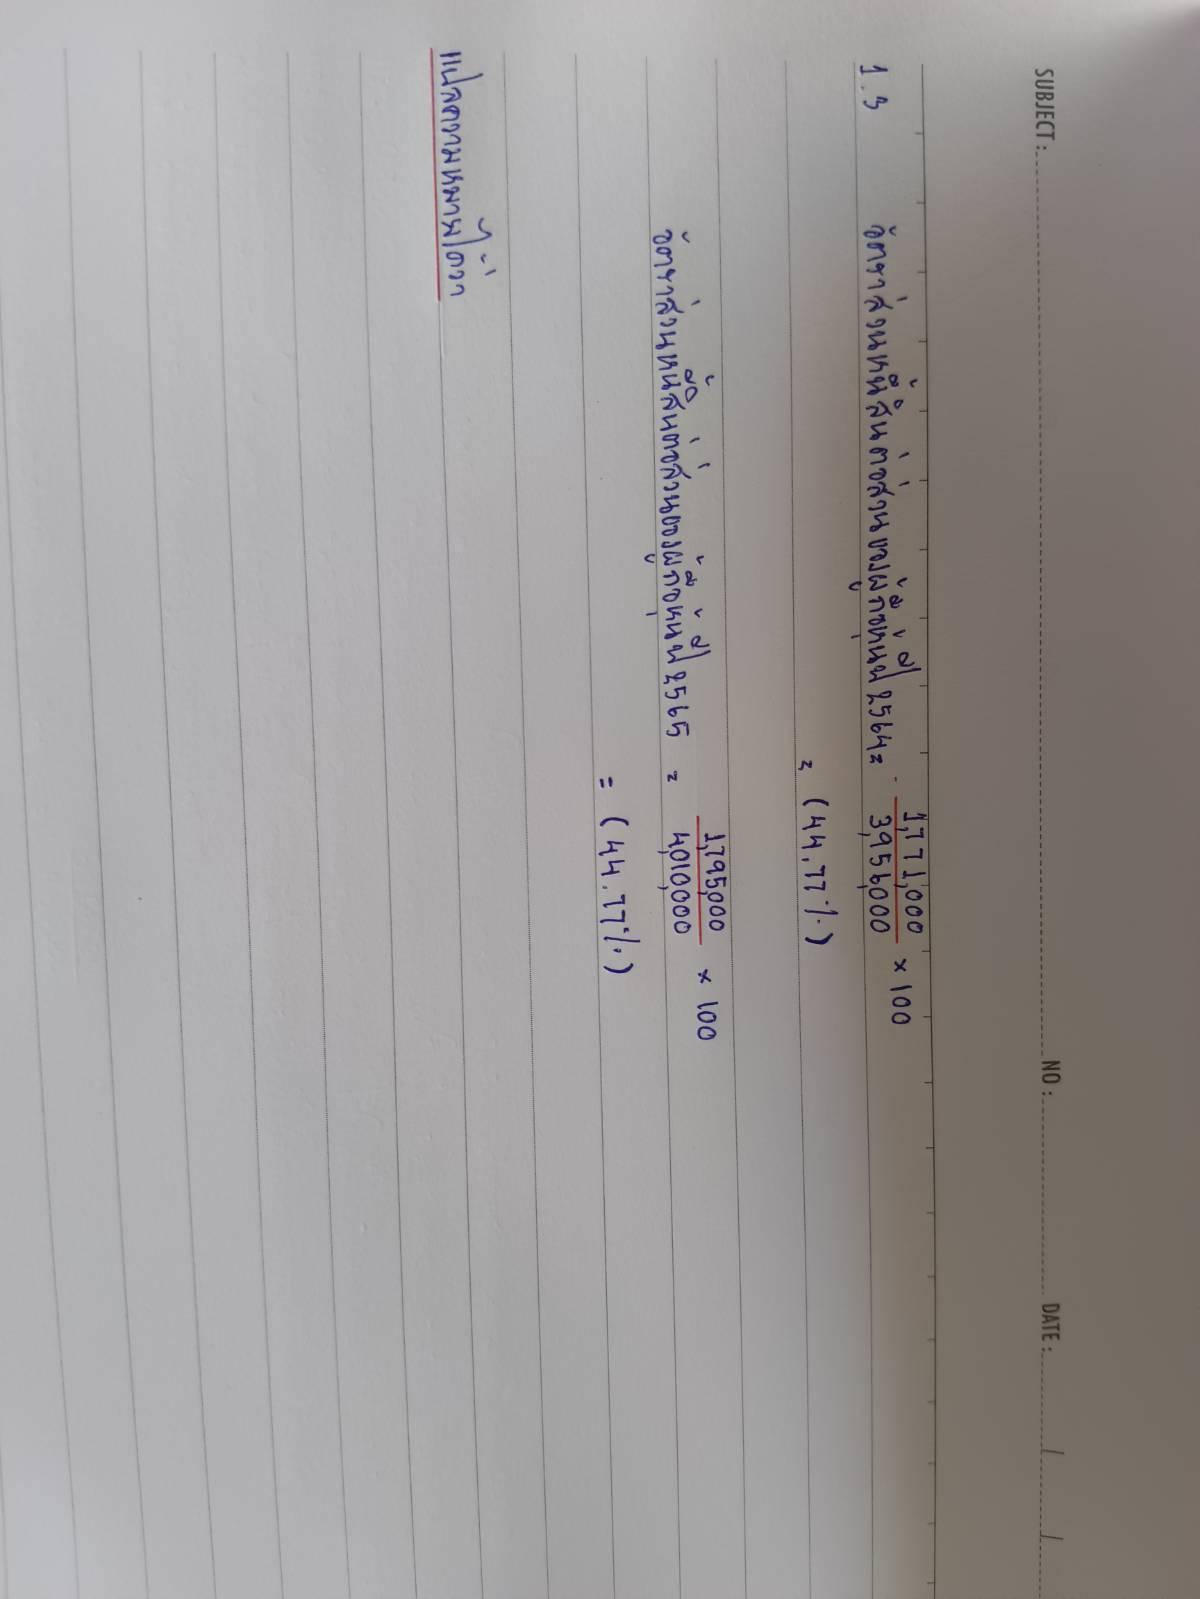 SUBJECT : NO : DATE : / /
1.3 อัตราส่วนหนี้สินต่อส่วนของผู้ถือหุ้นปี 2564 = 1,771,000
3,956,000 × 100
= (44.77%)
อัตราส่วนหนี้สินต่อส่วนของผู้ถือหุ้นปี 2565 = 1,795,000
4,010,000 × 100
= (44.77%)
แปลความหมายได้ว่า